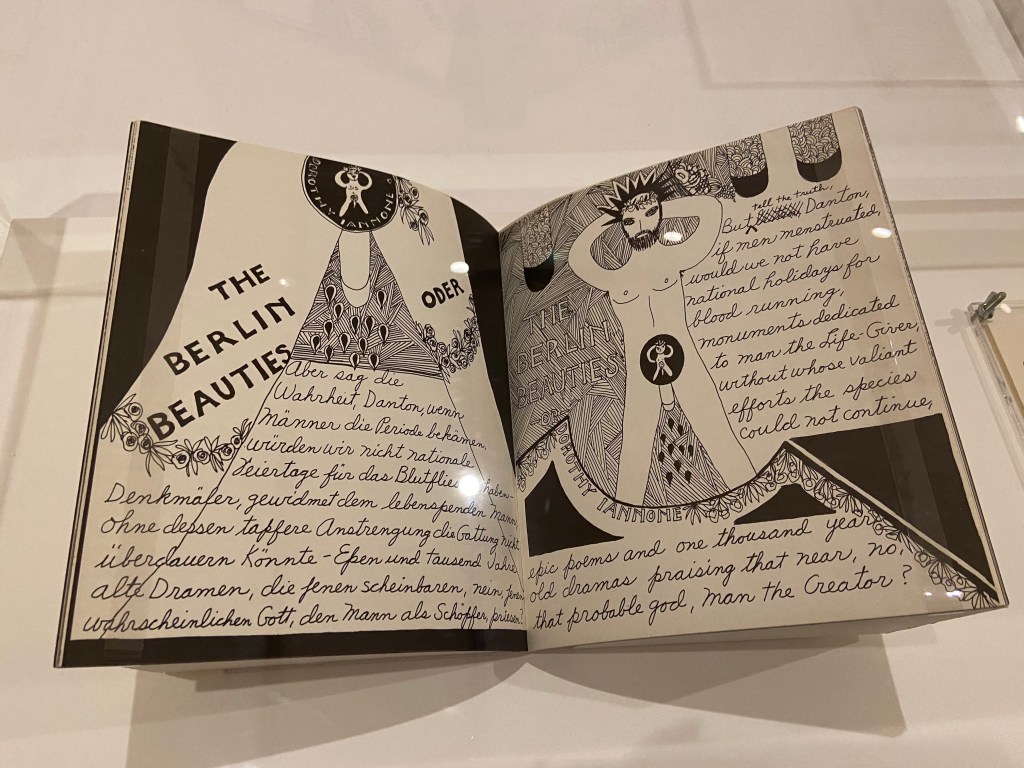 DOROTHY IANNONE
THE
BERLIN
BEAUTIES
ODER
Aber sag die
Wahrheit, Danton, wenn
Männer die Periode bekämen,
würden wir nicht nationale
Feiertage für das haben-
Denkmäler, gewidmet dem lebenspenden Mann,
ohne dessen tapfere Anstrengung die Gattung nicht
überdauern Könnte - Epen und tausend Jahre
alte Dramen, die jenen scheinbaren, nein, jenen
wahrscheinlichen Gott, den Mann als Schöpfer, priesen?
THE
BERLIN
BEAUTIES
OR
DOROTHY IANNONE
tell the truth,
But Danton,
if men menstruated,
would we not have
national holidays for
blood running,
monuments dedicated
to man the Life-Giver,
without whose valiant
efforts the species
could not continue,
epic poems and one thousand year
old dramas praising that near, no,
that probable god, Man the Creator?